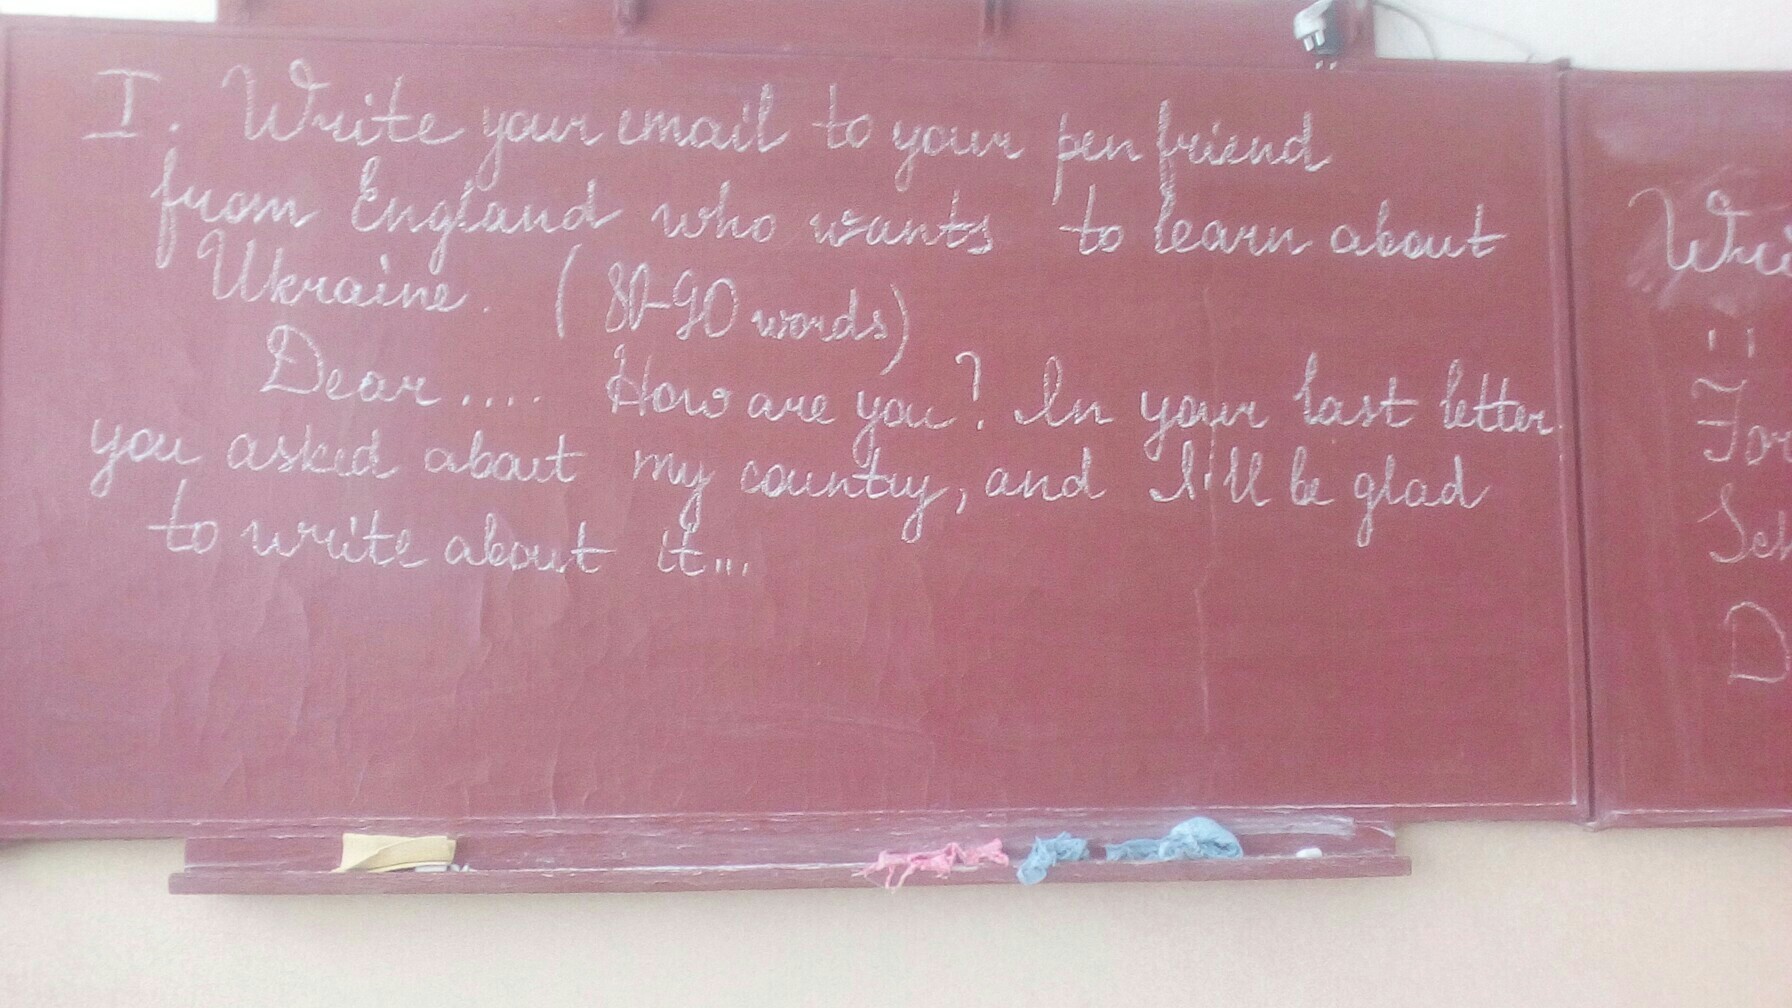 I. Write your email to your pen friend
from England who wants to learn about
Ukraine. (80-90 words)
Dear .... How are you? In your last letter
you asked about my country, and I'll be glad
to write about it...